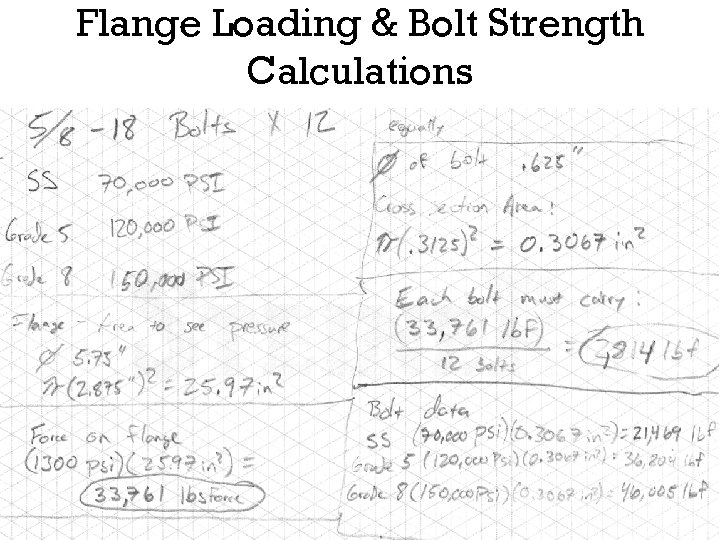 Flange Loading & Bolt Strength
Calculations
5/8 - 18 Bolts X 12
SS 70,000 PSI
Grade 5 120,000 PSI
Grade 8 150,000 PSI
Flange - Area to see pressure
Ø 5.75"
π(2.875")² = 25.97 in²
Force on flange
(1300 psi)(25.97 in²) =
33,761 lbsForce
equally
Ø of bolt .625"
Cross section Area:
π(.3125)² = 0.3067 in²
Each bolt must carry:
(33,761 lbf)
12 bolts
= 2,814 lbf
Bolt data
SS (70,000 psi)(0.3067 in²) = 21,469 lbf
Grade 5 (120,000 psi)(0.3067 in²) = 36,804 lbf
Grade 8 (150,000 psi)(0.3067 in²) = 46,005 lbf